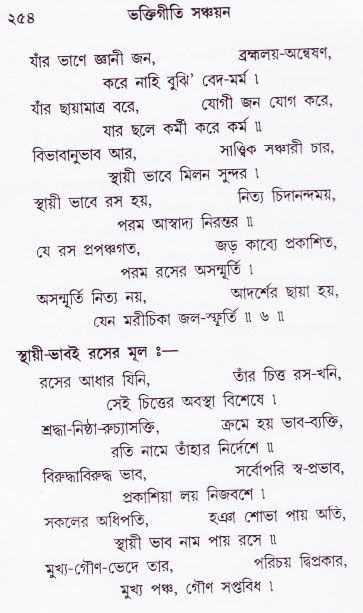 ২৫৪ ভক্তিগীতি সঞ্চয়ন
যাঁর ভাণে জ্ঞানী জন, ব্রহ্মলয়-অন্বেষণ,
করে নাহি বুঝি' বেদ-মর্ম ।
যাঁর ছায়ামাত্র বরে, যোগী জন যোগ করে,
যার ছলে কর্মী করে কর্ম ॥
বিভাবানুভাব আর, সাত্ত্বিক সঞ্চারী চার,
স্থায়ী ভাবে মিলন সুন্দর ।
স্থায়ী ভাবে রস হয়, নিত্য চিদানন্দময়,
পরম আস্বাদ্য নিরন্তর ॥
যে রস প্রপঞ্চগত, জড় কাব্যে প্রকাশিত,
পরম রসের অসন্মূর্তি ।
অসন্মূর্তি নিত্য নয়, আদর্শের ছায়া হয়,
যেন মরীচিকা জল-স্ফূর্তি ॥ ৬ ॥
স্থায়ী-ভাবই রসের মূল ঃ—
রসের আধার যিনি, তাঁর চিত্ত রস-খনি,
সেই চিত্তের অবস্থা বিশেষে ।
শ্রদ্ধা-নিষ্ঠা-রুচ্যাসক্তি, ক্রমে হয় ভাব-ব্যক্তি,
রতি নামে তাঁহার নির্দেশে ॥
বিরুদ্ধাবিরুদ্ধ ভাব, সর্বোপরি স্ব-প্রভাব,
প্রকাশিয়া লয় নিজবশে ।
সকলের অধিপতি, হঞা শোভা পায় অতি,
স্থায়ী ভাব নাম পায় রসে ॥
মুখ্য-গৌণ-ভেদে তার, পরিচয় দ্বিপ্রকার,
মুখ্য পঞ্চ, গৌণ সপ্তবিধ ।